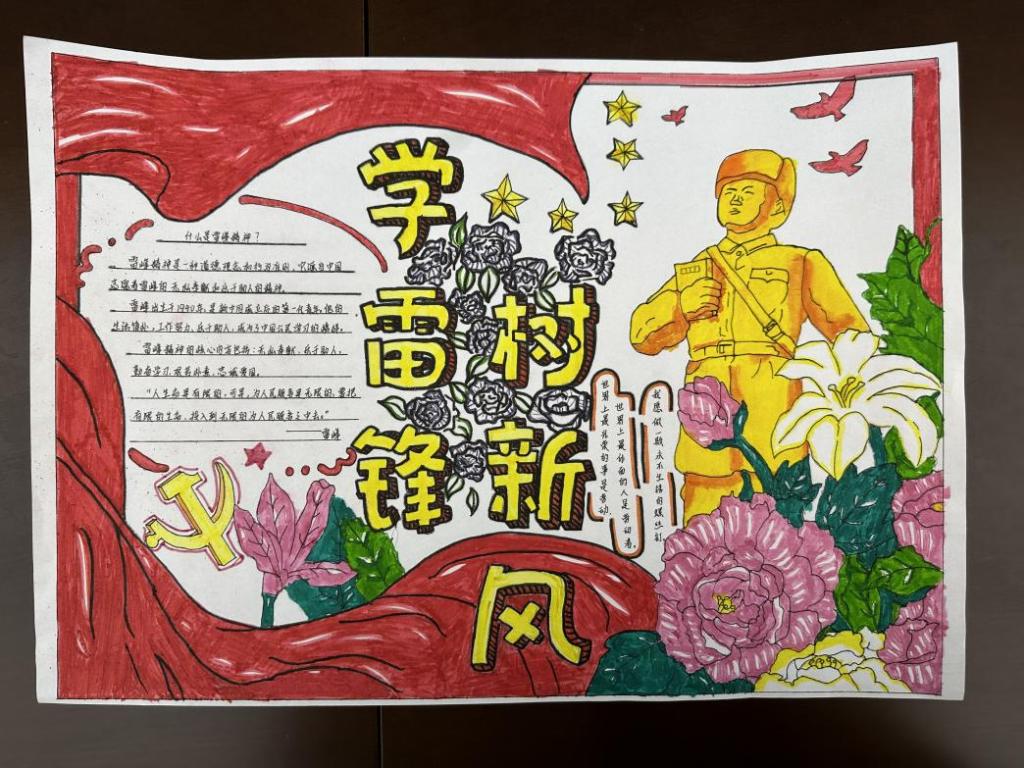 学雷锋
树新风
什么是雷锋精神？
雷锋精神是一种道德理念和行为准则，它源自中国
志愿者雷锋的无私奉献和乐于助人的精神。
雷锋出生于1940年，是新中国成立后的第一代青年，他的
生活简朴，工作努力，乐于助人，成为了中国公民学习的楷模。
雷锋精神的核心内容包括：无私奉献，乐于助人，
勤奋学习，艰苦朴素，忠诚爱国。
“人生命是有限的，可是，为人民服务是无限的，要把
有限的生命，投入到无限的为人民服务之中去。”
——雷锋
我愿做一颗永不生锈的螺丝钉
世界上最体面的人是劳动者。
世界上最光荣的事是劳动。